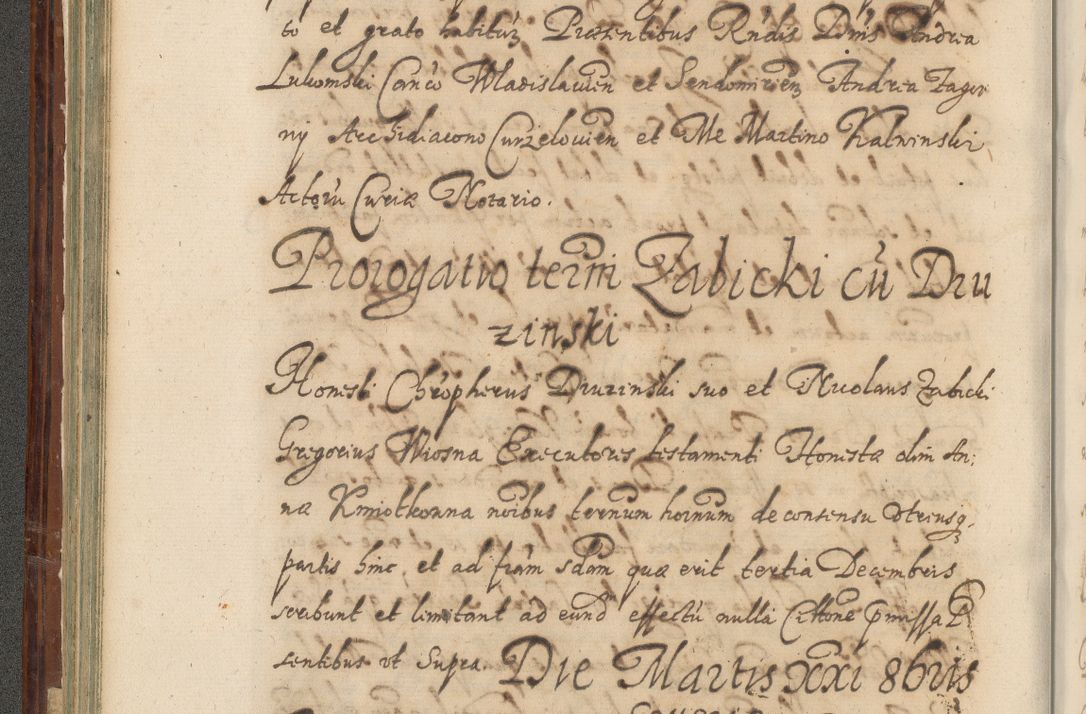 to et grato habituq Prӕsentibus Rndis Dnis Andrea
Lukomski Canco Wladislauien et Sendomirien, Andrea Zagor
nij Archidiacono Curzelouien et Me Martino Kalwinski
Actoru Curiӕ Notario.
Prorogatio termi Zabicki cu Dru
zinski
Honesti Chropherus Druzinski suo et Nicolaus Zabicki
Gregorius Wiosna Executores testamenti Honestӕ olim An:
nӕ Kmiotkonna noibus ternum hornum de consensu vtriusq,
partis hinc, et ad fram sdam quӕ erit tertia Decembris
scribunt et limitant ad eund effectu nulla Cittone pmissa P
sentibus vt Supra. Die Martis XXI 8bris